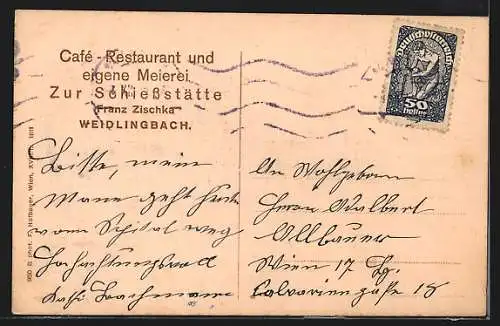 Café - Restaurant und
eigene Meierei
Zur Schießstätte
Franz Zischka
WEIDLINGBACH.
Deutschösterreich
50
Heller
Bitte, mein
Mann geht heute
vom Spital weg
Hochachtungsvoll
Bachmann
An Wohlgeboren
Herrn Adalbert
Allbauer
Wien 17 Bz.
Calvariengaße 18